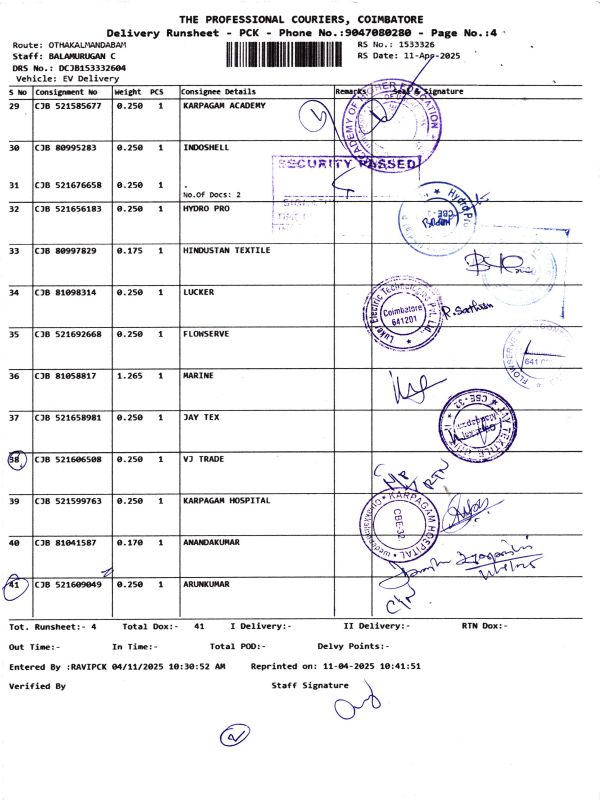 THE PROFESSIONAL COURIERS, COIMBATORE
Delivery Runsheet - PCK - Phone No.:9047080280 - Page No.:4
Route: OTHAKALMANDABAM RS No.: 1533326
Staff: BALAMURUGAN C RS Date: 11-Apr-2025
DRS No.: DCJB153332604
Vehicle: EV Delivery
S No Consignment No Weight PCS Consignee Details Remarks Seal & Signature
29 CJB 521585677 0.250 1 KARPAGAM ACADEMY
ACADEMY OF HIGHER EDUCATION
30 CJB 80995283 0.250 1 INDOSHELL
SECURITY PASSED
31 CJB 521676658 0.250 1 .
No.Of Docs: 2
32 CJB 521656183 0.250 1 HYDRO PRO
Hydro Pro
33 CJB 80997829 0.175 1 HINDUSTAN TEXTILE
34 CJB 81098314 0.250 1 LUCKER
Luker Electric Technologies Pvt. Ltd.
Coimbatore
641201
R. Sathish
35 CJB 521692668 0.250 1 FLOWSERVE
FLOWSERVE
36 CJB 81058817 1.265 1 MARINE
37 CJB 521658981 0.250 1 JAY TEX
JAY TEXTILE
CBE-32
38 CJB 521606508 0.250 1 VJ TRADE
RTN
39 CJB 521599763 0.250 1 KARPAGAM HOSPITAL
KARPAGAM HOSPITAL
CBE-32.
40 CJB 81041587 0.170 1 ANANDAKUMAR
41 CJB 521609049 0.250 1 ARUNKUMAR
Tot. Runsheet:- 4 Total Dox:- 41 I Delivery:- II Delivery:- RTN Dox:-
Out Time:- In Time:- Total POD:- Delvy Points:-
Entered By :RAVIPCK 04/11/2025 10:30:52 AM Reprinted on: 11-04-2025 10:41:51
Verified By Staff Signature
2